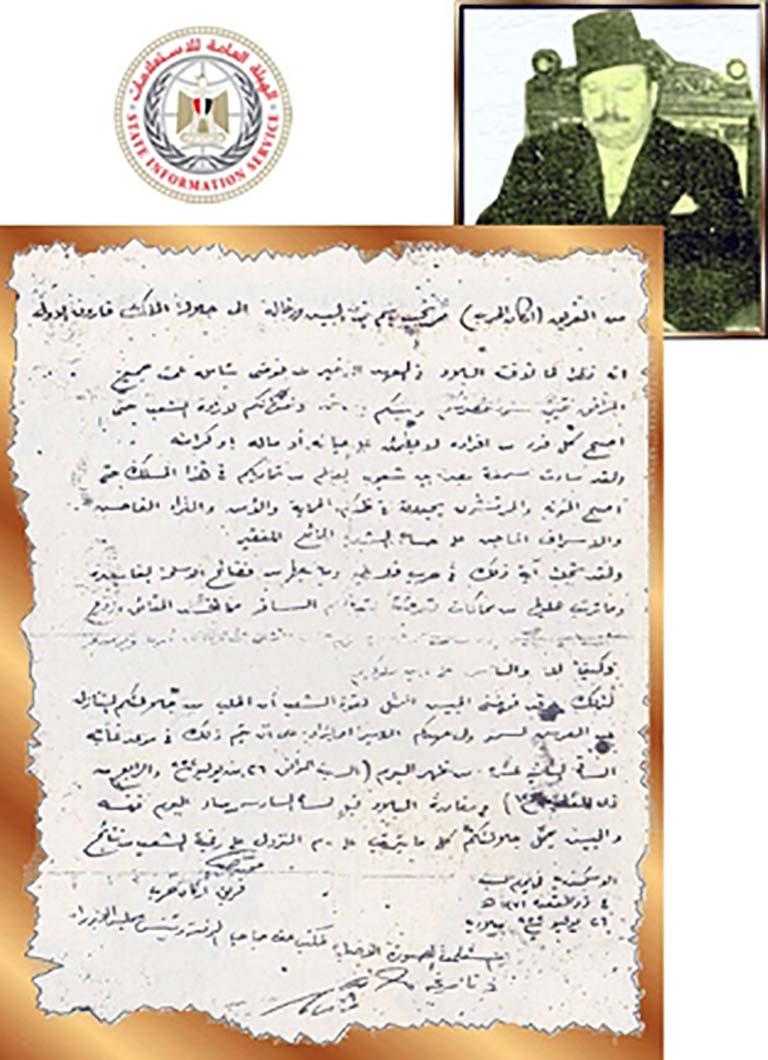 الهيئة العامة للاستعلامات
STATE INFORMATION SERVICE
من الفريق (أركان الحرب) محمد نجيب باسم الجيش ورجاله الى جلالة الملك فاروق الاول
انه نظرا لما لاقته البلاد في العهد الاخير من فوضى شاملة عمت جميع
المرافق نتيجة سوء تصرفكم وعبثكم وامتهانكم لارادة الشعب حتى
اصبح كل فرد من افراده لا يطمئن على حياته أو ماله او كرامته
ولقد ساءت سمعة مصر بين شعوب العالم من تماديكم في هذا المسلك حتى
اصبح الخونة والمرتشون يجدون في ظلكم الحماية والأمن والثراء الفاحش
والاسراف الماجن على حساب الشعب الجائع الفقير
ولقد تجلت آية ذلك في حرب فلسطين وما تبعها من فضائح الاسلحة الفاسدة
وما ترتب عليها من محاكمات تعرضت لتدخلكم السافر مما افسد الحقائق وزعزع
لذلك قد فوضني الجيش الممثل لقوة الشعب أن اطلب من جلالتكم التنازل
عن العرش لسمو ولي عهدكم الامير احمد فؤاد على أن يتم ذلك في موعد غايته
الساعة الثانية عشرة من ظهر اليوم (السبت الموافق ٢٦ من يوليو ١٩٥٢ والرابع من
ذي القعدة ١٣٧١) ومغادرة البلاد قبل الساعة السادسة من مساء اليوم نفسه
والجيش يحمل جلالتكم كل ما يترتب على عدم النزول على رغبة الشعب من نتائج
فريق أركان حرب
الاسكندرية في يوم السبت
٤ ذو القعدة ١٣٧١ هـ
٢٦ يوليو ١٩٥٢ ميلادية